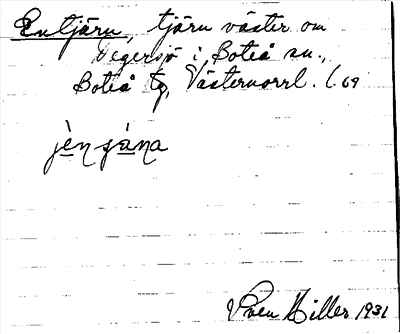 Entjärn, tjärn väster om
Degersjö i Boteå sn.,
Boteå tg, Västernorrl. l. 69
jènɟàna
Sven Hiller 1931